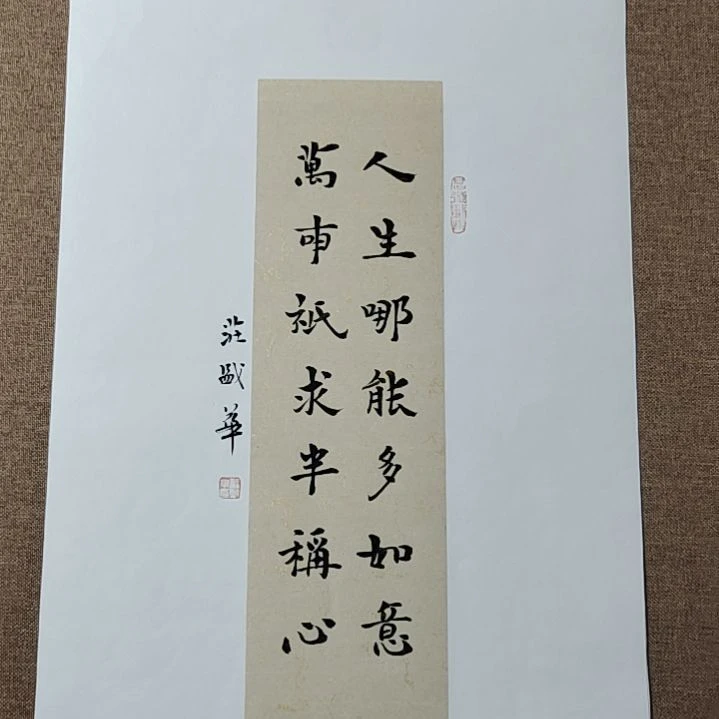 人生哪能多如意
萬事祇求半稱心
莊國華